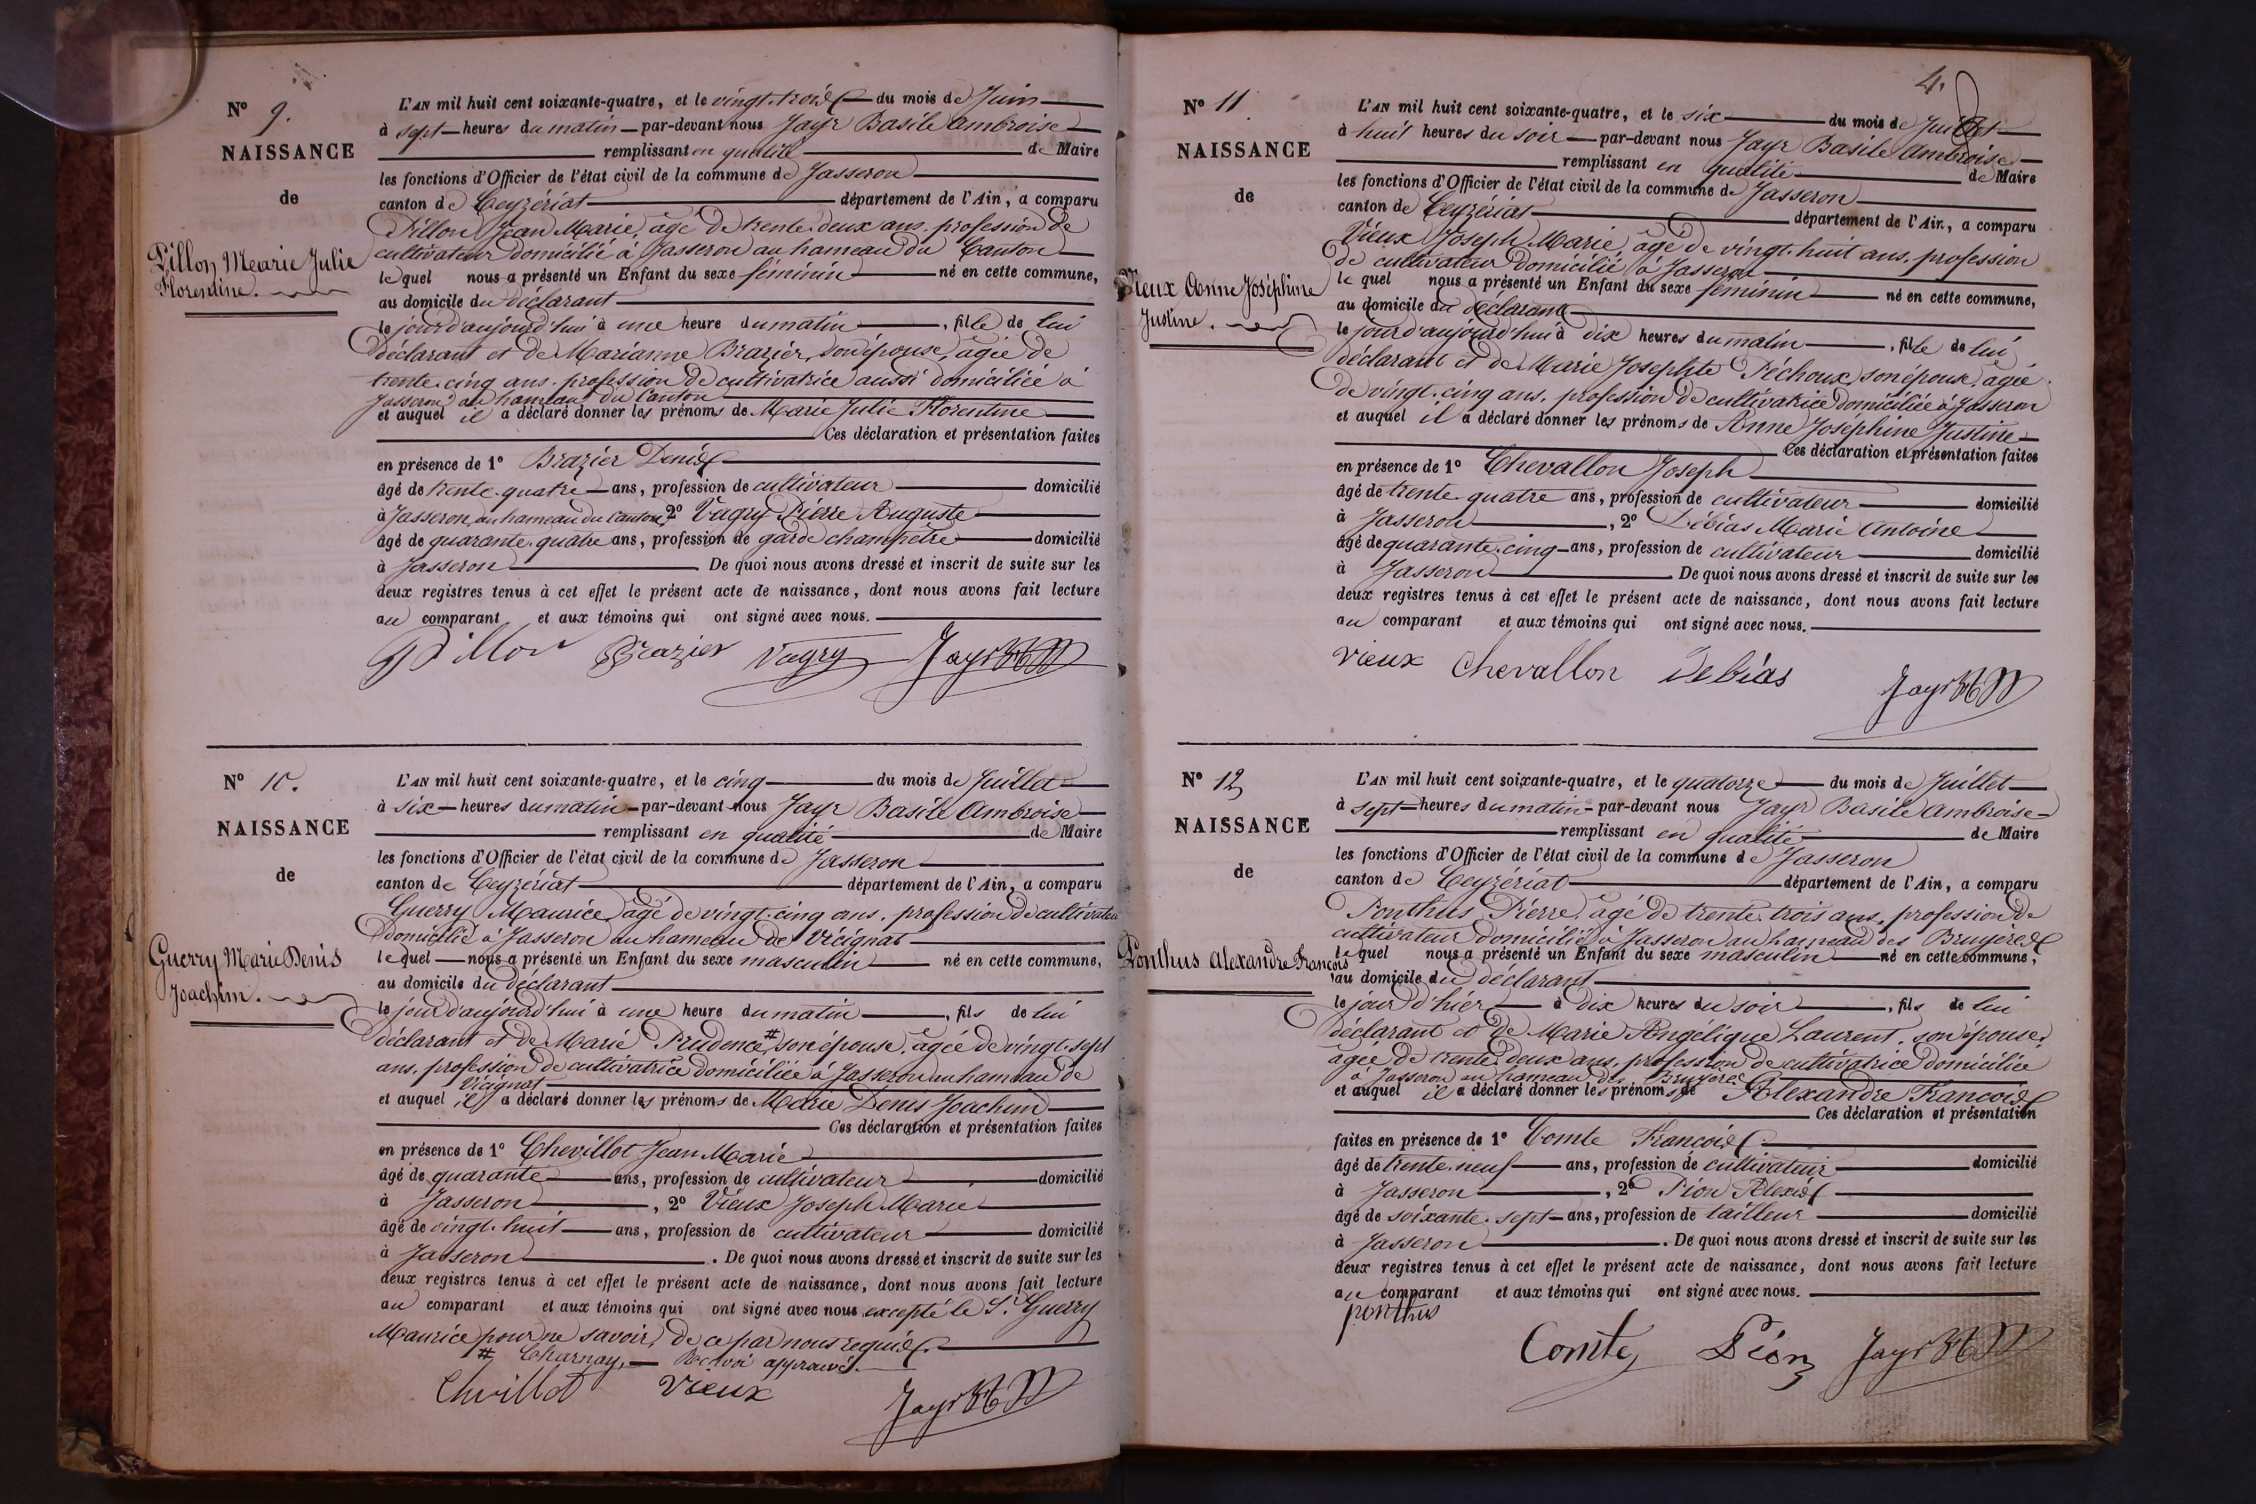 N° 9.
NAISSANCE
de
Pillon Marie Julie
Florentine.
L'AN mil huit cent soixante-quatre, et le vingt-trois du mois de Juin
à sept heures du matin par-devant nous Jayr Basile Ambroise
remplissant en qualité de Maire
les fonctions d'Officier de l'état civil de la commune de Jasseron
canton de Ceyzériat département de l'Ain, a comparu
Pillon Jean Marie, âgé de trente-deux ans, profession de
cultivateur domicilié à Jasseron au hameau du Canton
lequel nous a présenté un Enfant du sexe féminin né en cette commune,
au domicile du déclarant
le jour d'aujourd'hui à une heure du matin, fille de lui
déclarant et de Marianne Brazier, son épouse, âgée de
trente-cinq ans, profession de cultivatrice aussi domiciliée à
Jasseron au hameau du Canton
et auquel il a déclaré donner les prénoms de Marie Julie Florentine
Ces déclaration et présentation faites
en présence de 1° Brazier Denis
âgé de trente-quatre ans, profession de cultivateur domicilié
à Jasseron, au hameau du Canton, 2° Vugry Pierre Auguste
âgé de quarante-quatre ans, profession de garde champêtre domicilié
à Jasseron De quoi nous avons dressé et inscrit de suite sur les
deux registres tenus à cet effet le présent acte de naissance, dont nous avons fait lecture
au comparant et aux témoins qui ont signé avec nous.
Pillon Brazier Vugry Jayr
N° 10.
NAISSANCE
de
Guerry Marie Denis
Joachim.
L'AN mil huit cent soixante-quatre, et le cinq du mois de Juillet
à six heures du matin par-devant nous Jayr Basile Ambroise
remplissant en qualité de Maire
les fonctions d'Officier de l'état civil de la commune de Jasseron
canton de Ceyzériat département de l'Ain, a comparu
Guerry Maurice, âgé de vingt-cinq ans, profession de cultivateur
domicilié à Jasseron au hameau de Vicignat
lequel nous a présenté un Enfant du sexe masculin né en cette commune,
au domicile du déclarant
le jour d'aujourd'hui à une heure du matin, fils de lui
déclarant et de Marie Prudence # son épouse, âgée de vingt-sept
ans, profession de cultivatrice domiciliée à Jasseron au hameau de
Vicignat
et auquel il a déclaré donner les prénoms de Marie Denis Joachim
Ces déclaration et présentation faites
en présence de 1° Chevillot Jean Marie
âgé de quarante ans, profession de cultivateur domicilié
à Jasseron, 2° Vieux Joseph Marie
âgé de vingt-huit ans, profession de cultivateur domicilié
à Jasseron. De quoi nous avons dressé et inscrit de suite sur les
deux registres tenus à cet effet le présent acte de naissance, dont nous avons fait lecture
au comparant et aux témoins qui ont signé avec nous excepté le Sr. Guerry
Maurice pour ne savoir, de ce par nous requis.
# Charnay, Renvoi approuvé.
Chevillot Vieux Jayr
4.
N° 11
NAISSANCE
de
Vieux Anne Joséphine
Justine.
L'AN mil huit cent soixante-quatre, et le six du mois de Juillet
à huit heures du soir par-devant nous Jayr Basile Ambroise
remplissant en qualité de Maire
les fonctions d'Officier de l'état civil de la commune de Jasseron
canton de Ceyzériat département de l'Ain, a comparu
Vieux Joseph Marie, âgé de vingt-huit ans, profession
de cultivateur domicilié à Jasseron
lequel nous a présenté un Enfant du sexe féminin né en cette commune,
au domicile du déclarant
le jour d'aujourd'hui à dix heures du matin, fille de lui
déclarant et de Marie Josephte Péchoux, son épouse, âgée
de vingt-cinq ans, profession de cultivatrice domiciliée à Jasseron
et auquel il a déclaré donner les prénoms de Anne Joséphine Justine
Ces déclaration et présentation faites
en présence de 1° Chevallon Joseph
âgé de trente-quatre ans, profession de cultivateur domicilié
à Jasseron, 2° Débias Marie Antoine
âgé de quarante-cinq ans, profession de cultivateur domicilié
à Jasseron. De quoi nous avons dressé et inscrit de suite sur les
deux registres tenus à cet effet le présent acte de naissance, dont nous avons fait lecture
au comparant et aux témoins qui ont signé avec nous.
vieux Chevallon Debias Jayr
N° 12
NAISSANCE
de
Ponthus Alexandre François
L'AN mil huit cent soixante-quatre, et le quatorze du mois de Juillet
à sept heures du matin par-devant nous Jayr Basile Ambroise
remplissant en qualité de Maire
les fonctions d'Officier de l'état civil de la commune de Jasseron
canton de Ceyzériat département de l'Ain, a comparu
Ponthus Pierre, âgé de trente-trois ans, profession de
cultivateur domicilié à Jasseron au hameau des Bruyères
lequel nous a présenté un Enfant du sexe masculin né en cette commune,
au domicile du déclarant
le jour d'hier à dix heures du soir, fils de lui
déclarant et de Marie Angélique Laurent, son épouse,
âgée de trente-deux ans, profession de cultivatrice domiciliée
à Jasseron au hameau des Bruyères
et auquel il a déclaré donner les prénoms de Alexandre François
Ces déclaration et présentation
faites en présence de 1° Comte François
âgé de trente-neuf ans, profession de cultivateur domicilié
à Jasseron, 2° Pion Alexis
âgé de soixante-sept ans, profession de tailleur domicilié
à Jasseron. De quoi nous avons dressé et inscrit de suite sur les
deux registres tenus à cet effet le présent acte de naissance, dont nous avons fait lecture
au comparant et aux témoins qui ont signé avec nous.
ponthus
Comte Pion Jayr